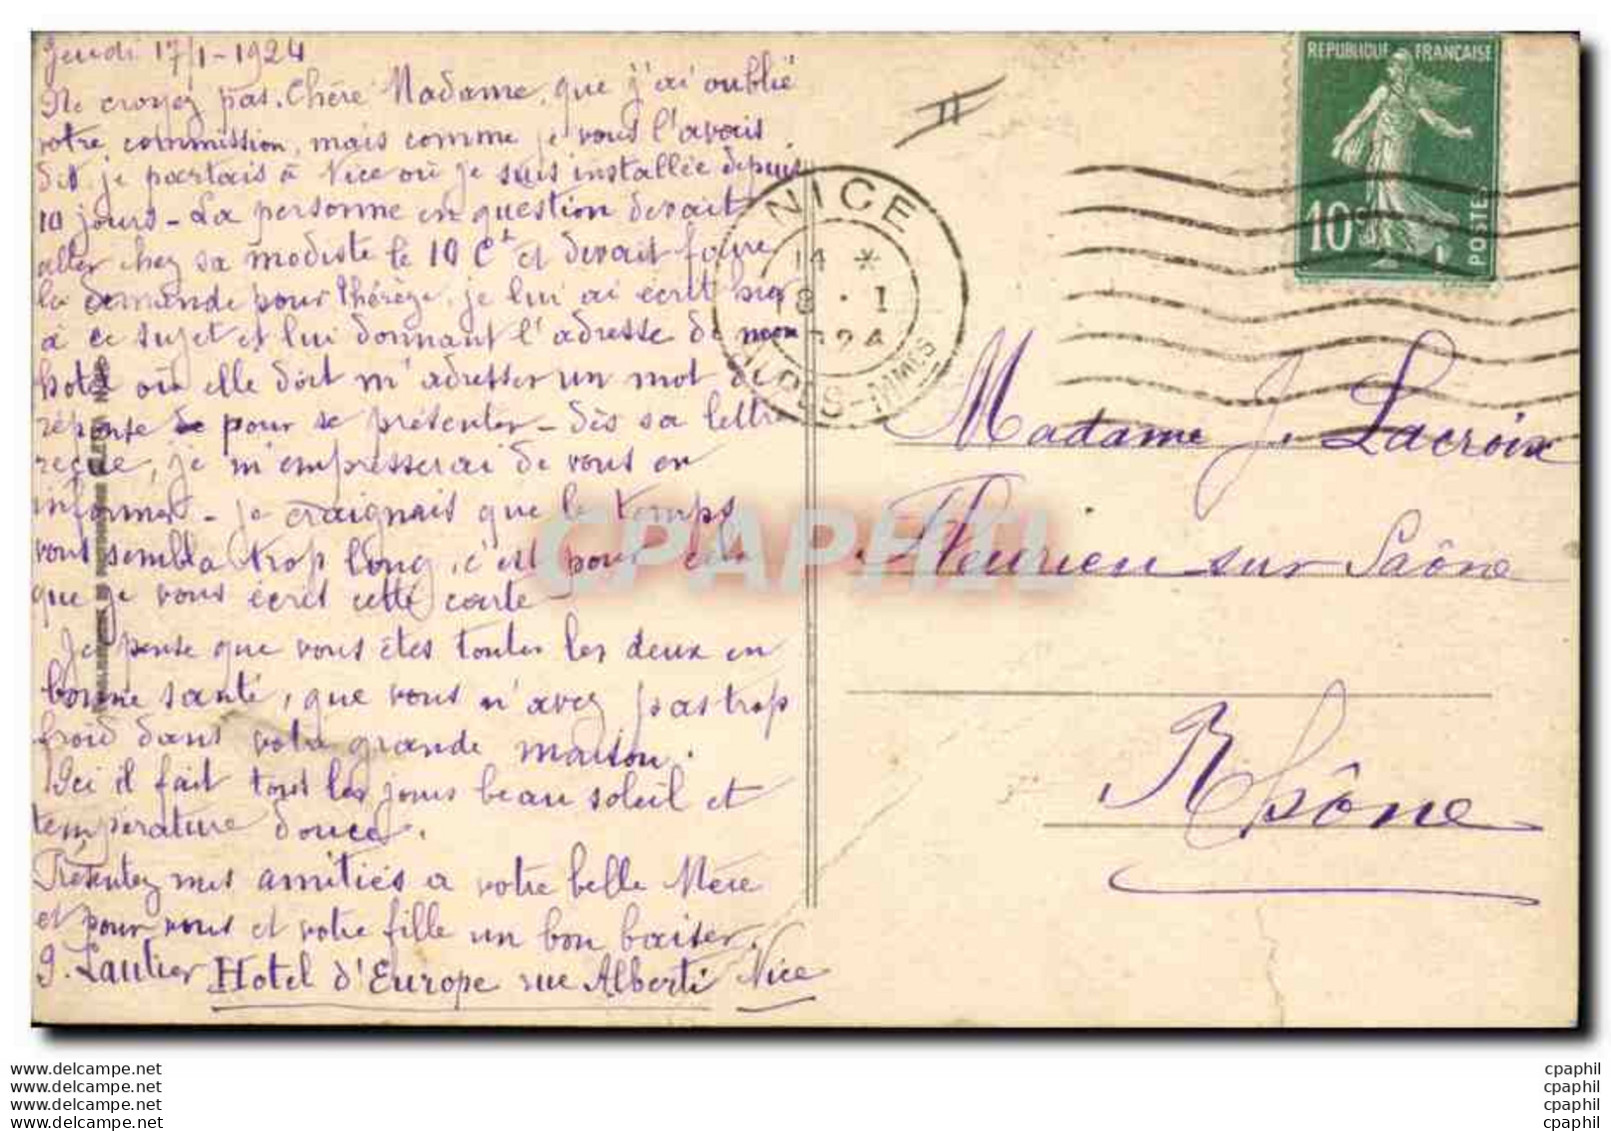 Jeudi 17/1-1924
Ne croyez pas, Chère Madame, que j'ai oublié
votre commission, mais comme je vous l'avais
dit, je partais à Nice où je suis installée depuis
10 jours - La personne en question devait
aller chez sa modiste le 10 Ct et devait faire
la demande pour Thérèze, je lui ai écrit
à ce sujet et lui donnant l'adresse de mon
hotel où elle doit m'adresser un mot de
réponse pour se présenter - dès sa lettre
reçue, je m'empresserai de vous en
informer - je craignais que le temps
vous sembla trop long, c'est pour cela
que je vous écris cette carte
Je pense que vous êtes toutes les deux en
bonne santé, que vous n'avez pas trop
froid dans votre grande maison.
Ici il fait tous les jours beau soleil et
température douce.
Présentez mes amitiés a votre belle Mère
et pour vous et votre fille un bon baiser.
g. Lautier Hotel d'Europe rue Alberti Nice
REPUBLIQUE FRANÇAISE
10c
POSTES
NICE
14 *
18 . 1
24
ALPES-MMES
Madame J. Lacroix
Fleurieu sur Saône
Rhône
CPAPHIL
www.delcampe.net
www.delcampe.net
www.delcampe.net
www.delcampe.net
cpaphil
cpaphil
cpaphil
cpaphil